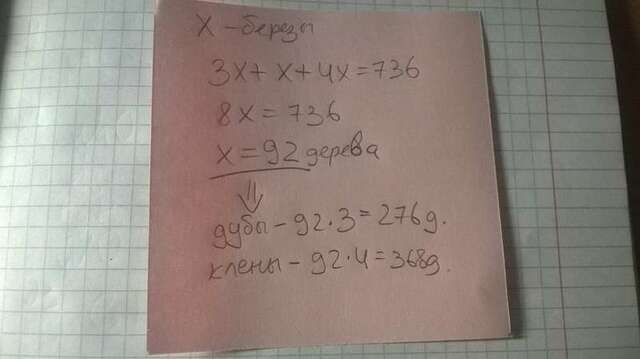 X - березы
3x + x + 4x = 736
8x = 736
x = 92 дерева
⇓
дубы - 92·3 = 276д.
клены - 92·4 = 368д.